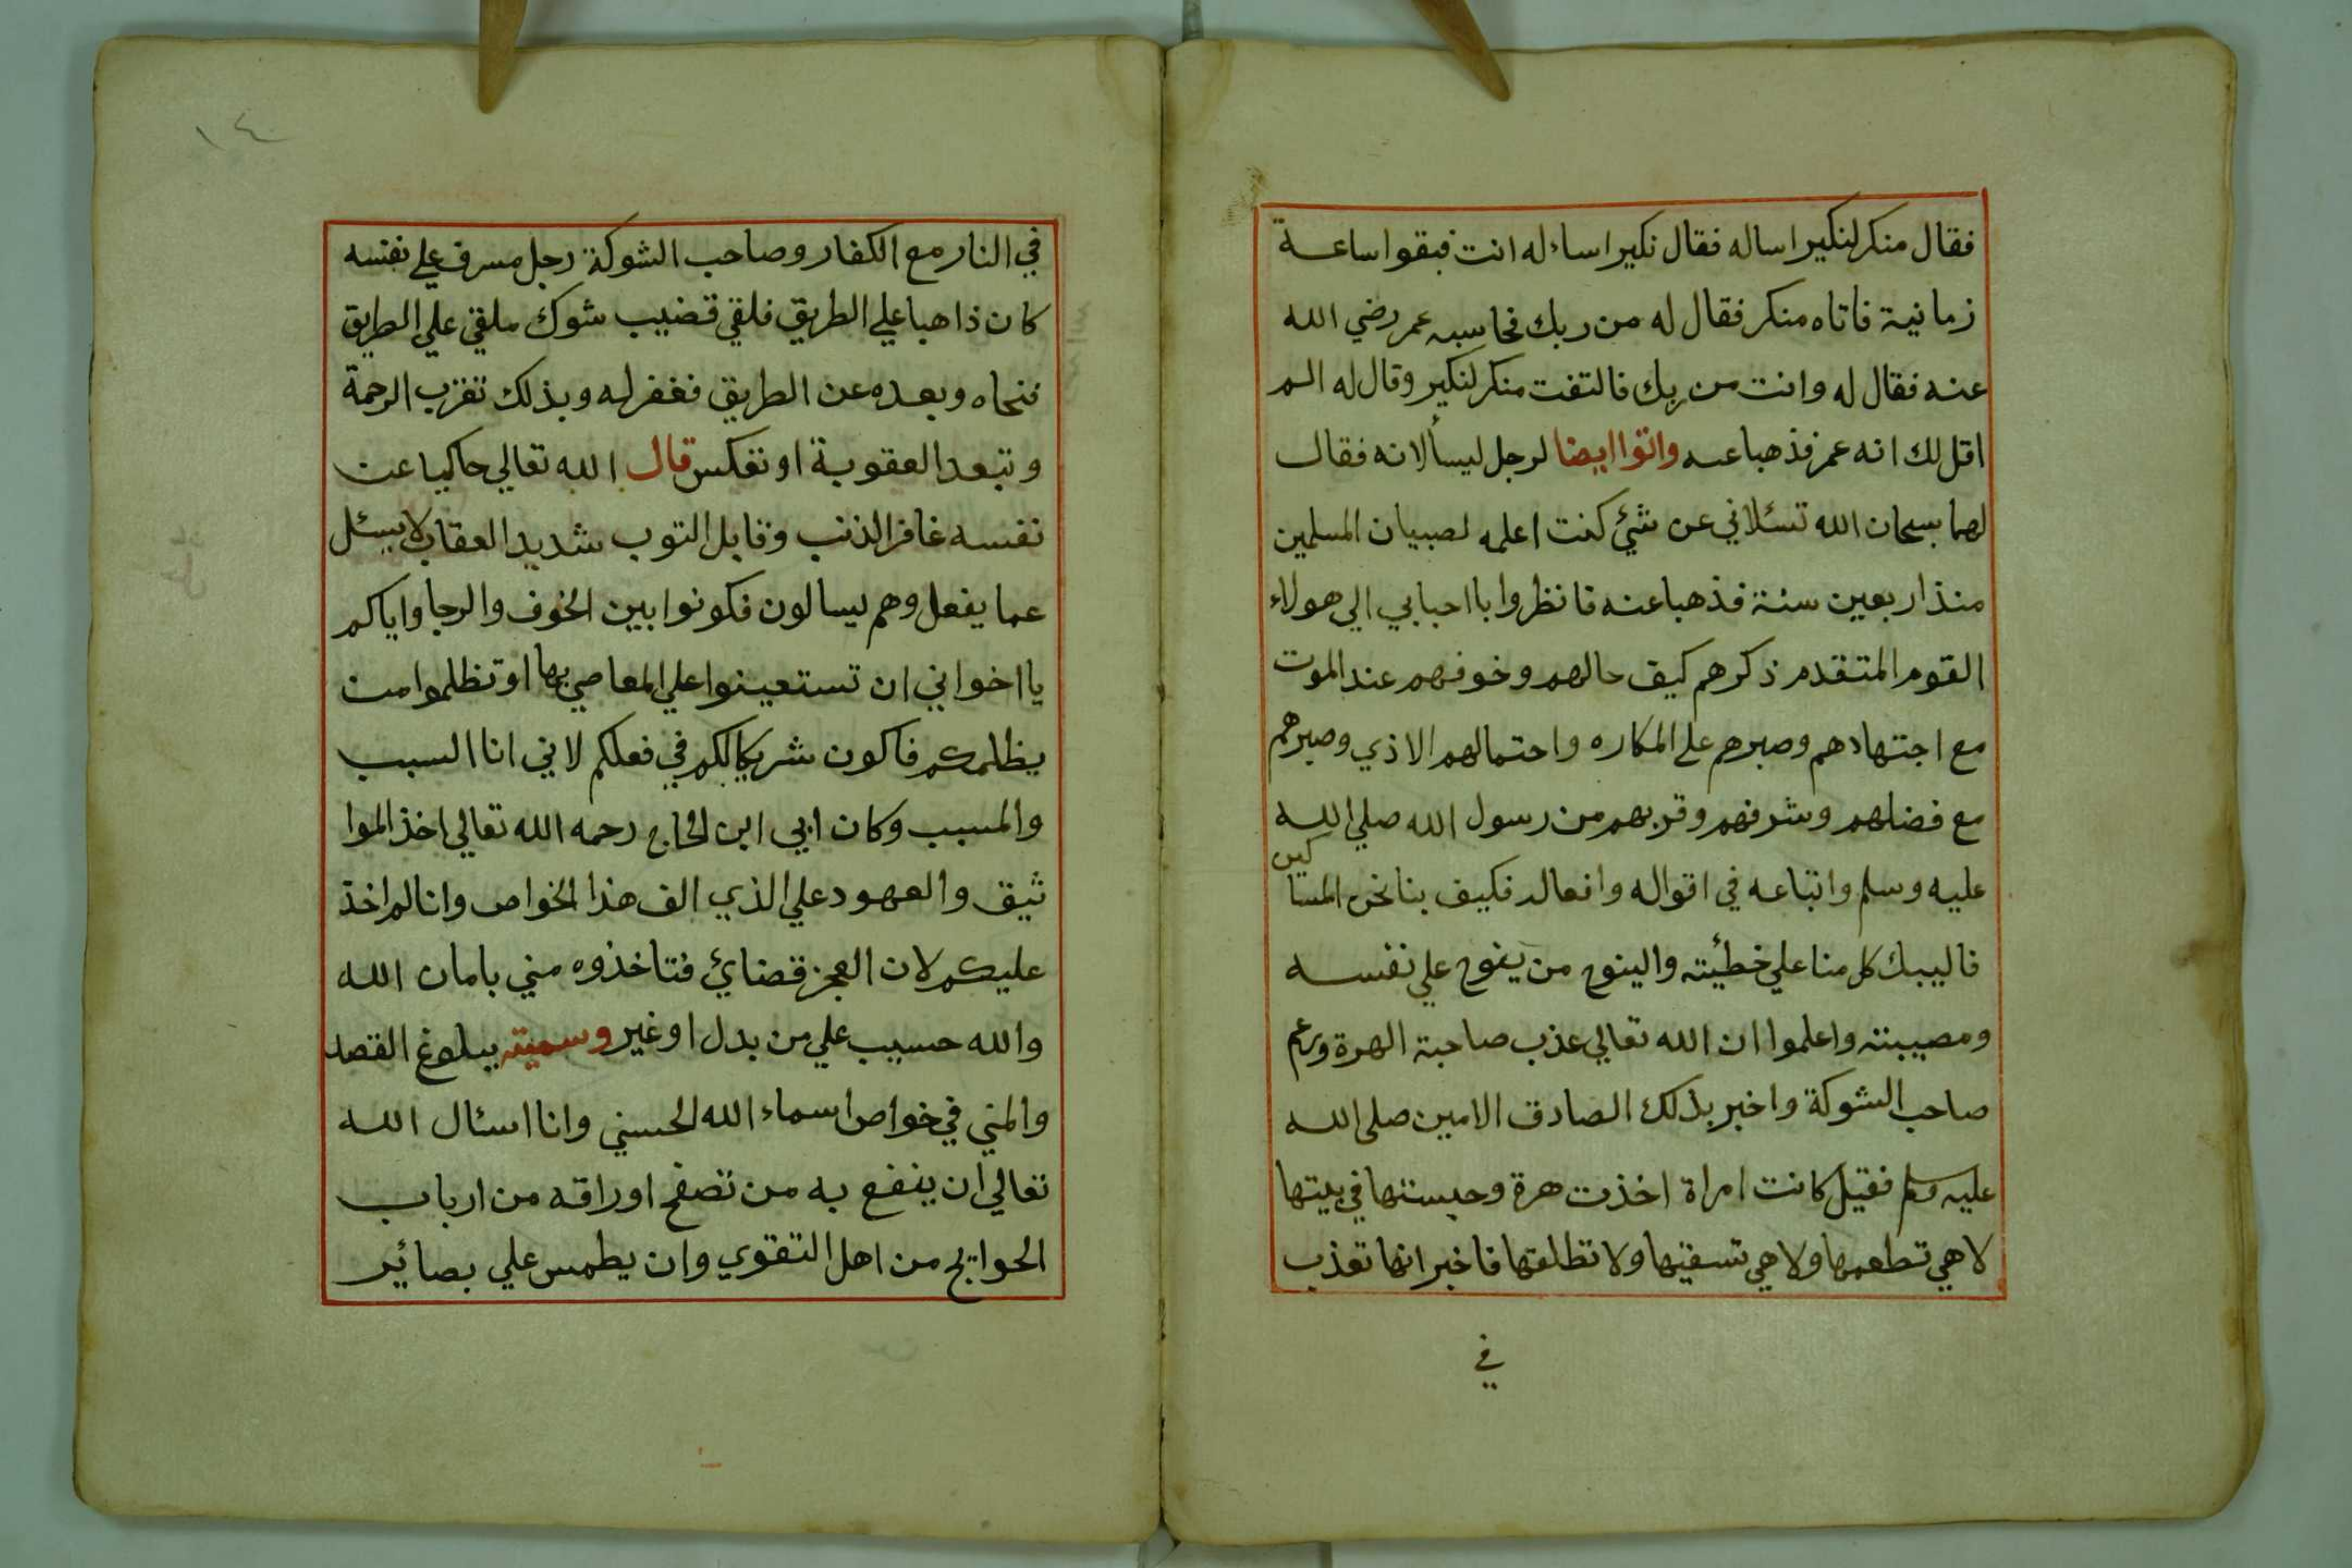 فقال منكر لنكير اساله فقال نكير اساءله انت فبقوا ساعة
زمانية فاتاه منكر فقال له من ربك فحاسبه عمر رضي الله
عنه فقال له وانت من ربك فالتفت منكر لنكير وقال له الم
اقل لك انه عمر فذهبا عنه واتوا ايضا لرجل ليسألانه فقال
لهما بسحان الله تسئلاني عن شئ كنت اعلمه لصبيان المسلمين
منذ اربعين سنة فذهبا عنه فانظروا يااحبابي الي هولاء
القوم المتقدم ذكرهم كيف حالهم وخوفهم عند الموت
مع اجتهادهم وصبرهم على المكاره واحتمالهم الاذي وصبرهم
مع فضلهم وشرفهم وقربهم من رسول الله صلي الله
عليه وسلم واتباعه في اقواله وافعاله فكيف بنا نحن المساكين
فاليبك كل منا علي خطئيته والينوح من ينوح علي نفسه
ومصيبته واعلموا ان الله تعالي عذب صاحبة الهرة ورحم
صاحب الشوكة واخبر بذلك الصادق الامين صلى الله
عليه وسلم فقيل كانت امراة اخذت هرة وحبستها في بيتها
لا هي تطعمها ولا هي تسقيها ولا تطلقها فاخبر انها تعذب
في
١٤
في النار مع الكفار وصاحب الشوكة رجل مسرف علي نفسه
كان ذاهبا علي الطريق فلقي قضيب شوك ملقي علي الطريق
فنحاه وبعده عن الطريق فغفر له وبذلك تقرب الرحمة
وتبعد العقوبة او تعكس قال الله تعالي حاكيا عن
نفسه غافر الذنب وقابل التوب شديد العقاب لا يسئل
عما يفعل وهم يسالون فكونوا بين الخوف والرجا واياكم
يااخواني ان تستعينوا علي المعاصي بها او تظلموا من
يظلمكم فاكون شريكا لكم في فعلكم لاني انا السبب
والمسبب وكان ابي ابن الحاج رحمه الله تعالي اخذ الموا
ثيق والعهود علي الذي الف هذا الخواص وانا لم اخذ
عليكم لان العجز قضائ فتاخذوه مني بامان الله
والله حسيب علي من بدل او غير وسميته ببلوغ القصد
والمني في خواص اسماء الله الحسني وانا اسئال الله
تعالي ان ينفع به من تصفح اوراقه من ارباب
الحوايج من اهل التقوي وان يطمس علي بصائير